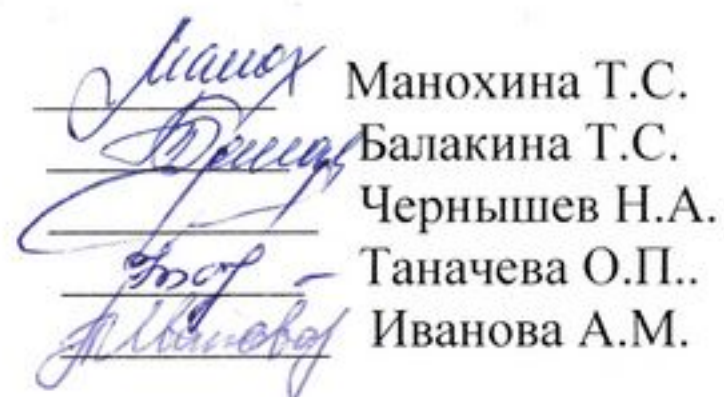 Манох Манохина Т.С.
Балакина Т.С.
Чернышев Н.А.
Таначева О.П..
Иванова Иванова А.М.